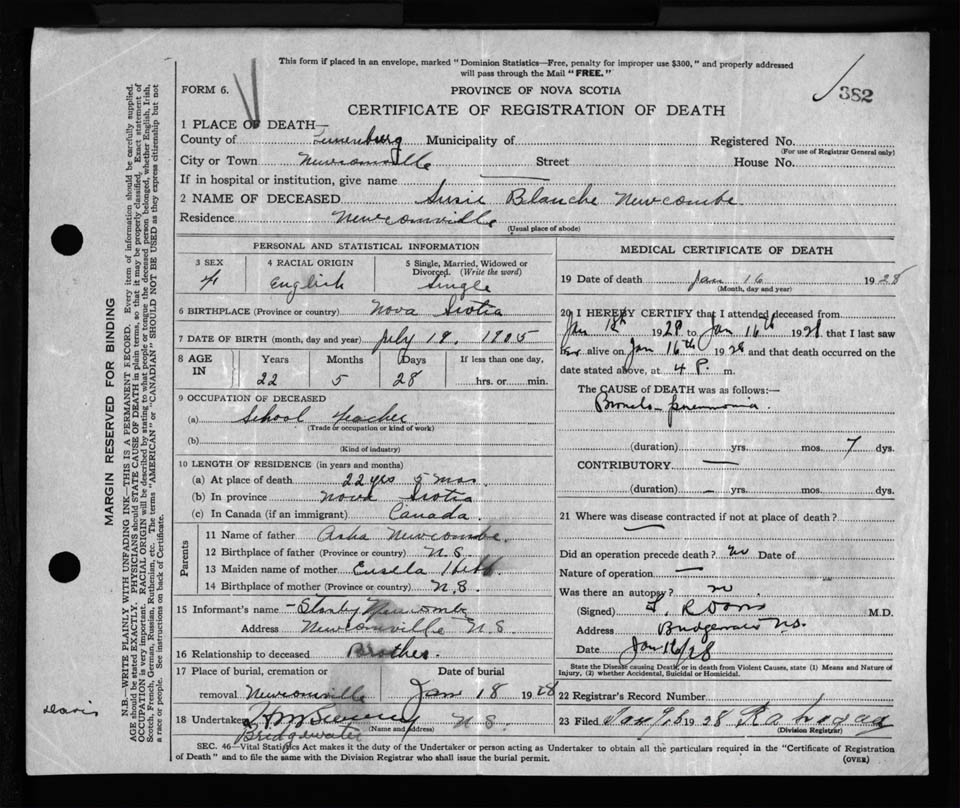 This form if placed in an envelope, marked "Dominion Statistics—Free, penalty for improper use $300," and properly addressed
will pass through the Mail "FREE."
FORM 6.
PROVINCE OF NOVA SCOTIA
382
CERTIFICATE OF REGISTRATION OF DEATH
1 PLACE OF DEATH—
County of Lunenburg Municipality of Registered No.
(For use of Registrar General only)
City or Town Newcomville Street House No.
If in hospital or institution, give name —
2 NAME OF DECEASED Susie Blanche Newcombe
Residence Newcomville
(Usual place of abode)
PERSONAL AND STATISTICAL INFORMATION
3 SEX 4 RACIAL ORIGIN 5 Single, Married, Widowed or Divorced. (Write the word)
F English Single
6 BIRTHPLACE (Province or country) Nova Scotia
7 DATE OF BIRTH (month, day and year) July 19, 1905
8 AGE IN Years Months Days If less than one day,
22 5 28 hrs. or min.
9 OCCUPATION OF DECEASED
(a) School Teacher
(Trade or occupation or kind of work)
(b)
(Kind of industry)
10 LENGTH OF RESIDENCE (in years and months)
(a) At place of death 22 yrs 5 mos.
(b) In province Nova Scotia
(c) In Canada (if an immigrant) Canada
Parents
11 Name of father Newcombe
12 Birthplace of father (Province or country) N.S.
13 Maiden name of mother Hebb
14 Birthplace of mother (Province or country) N.S.
15 Informant's name Newcombe
Address Newcomville N.S.
16 Relationship to deceased Brother
17 Place of burial, cremation or Date of burial
removal Newcomville Jan 18 1928
18 Undertaker N.S.
(Name and address)
Bridgewater
MEDICAL CERTIFICATE OF DEATH
19 Date of death Jan 16 1928
(Month, day and year)
20 I HEREBY CERTIFY that I attended deceased from
Jan 1928 to Jan 16th 1928 that I last saw
her alive on Jan 16th 1928 and that death occurred on the
date stated above, at 4 P. m.
The CAUSE of DEATH was as follows:—
Broncho pneumonia
(duration) yrs. mos. 7 dys.
CONTRIBUTORY —
(duration) — yrs. mos. dys.
21 Where was disease contracted if not at place of death?
—
Did an operation precede death? no Date of
Nature of operation —
Was there an autopsy? no
(Signed) M.D.
Address Bridgewater N.S.
Date Jan 16/28
State the Disease causing Death, or in death from Violent Causes, state (1) Means and Nature of
Injury, (2) whether Accidental, Suicidal or Homicidal.
22 Registrar's Record Number
23 Filed 1928
(Division Registrar)
SEC. 46—Vital Statistics Act makes it the duty of the Undertaker or person acting as Undertaker to obtain all the particulars required in the "Certificate of Registration
of Death" and to file the same with the Division Registrar who shall issue the burial permit.
(OVER)
MARGIN RESERVED FOR BINDING
N.B.—WRITE PLAINLY WITH UNFADING INK—THIS IS A PERMANENT RECORD. Every item of information should be carefully supplied.
AGE should be stated EXACTLY. PHYSICIANS should STATE CAUSE OF DEATH in plain terms, so that it may be properly classified. Exact statement of
OCCUPATION is very important. RACIAL ORIGIN will be described by stating to what people or tongue the deceased person belonged, whether English, Irish,
Scotch, French, German, Russian, Ruthenian, etc. The terms "AMERICAN" or "CANADIAN" SHOULD NOT BE USED as they express citizenship but not
a race or people. See instructions on back of Certificate.
Davis